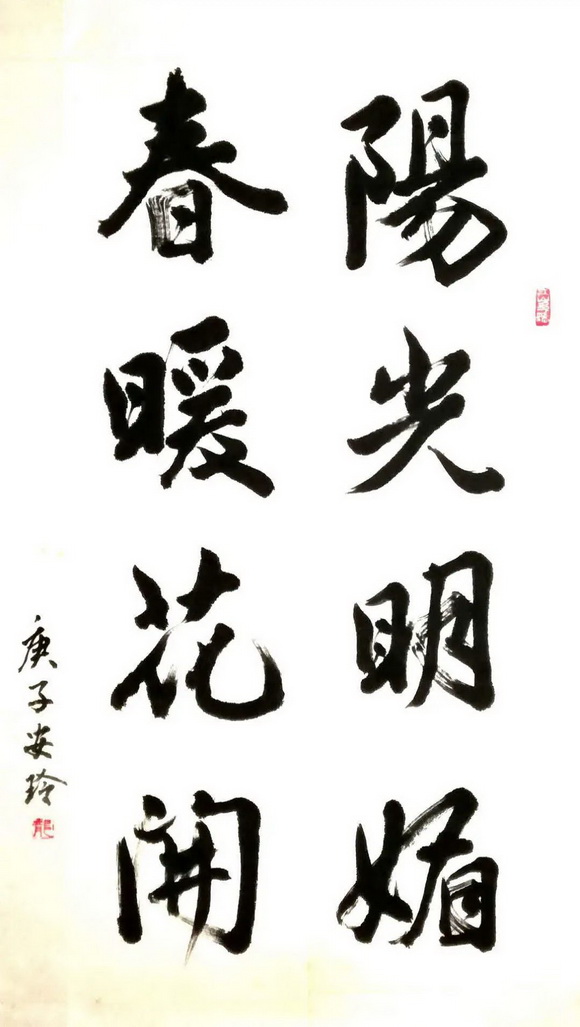 陽光明媚
春暖花開
庚子安玲